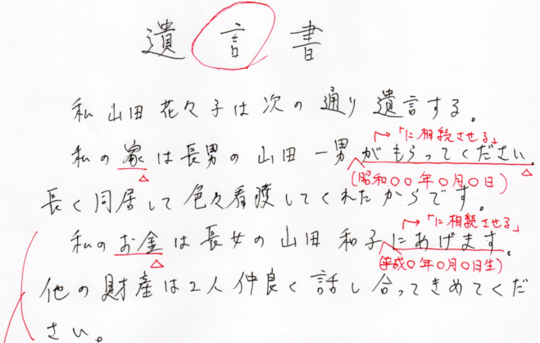 遺言書
私 山田 花々子は次の通り遺言する。
→「に相続させる」
私の家は長男の山田 一男がもらってください。
(昭和〇〇年〇月〇日)
長く同居して色々看護してくれたからです。
→「に相続させる」
私のお金は長女の山田 和子にあげます。
(平成〇年〇月〇日生)
他の財産は2人仲良く話し合ってきめてくだ
さい。